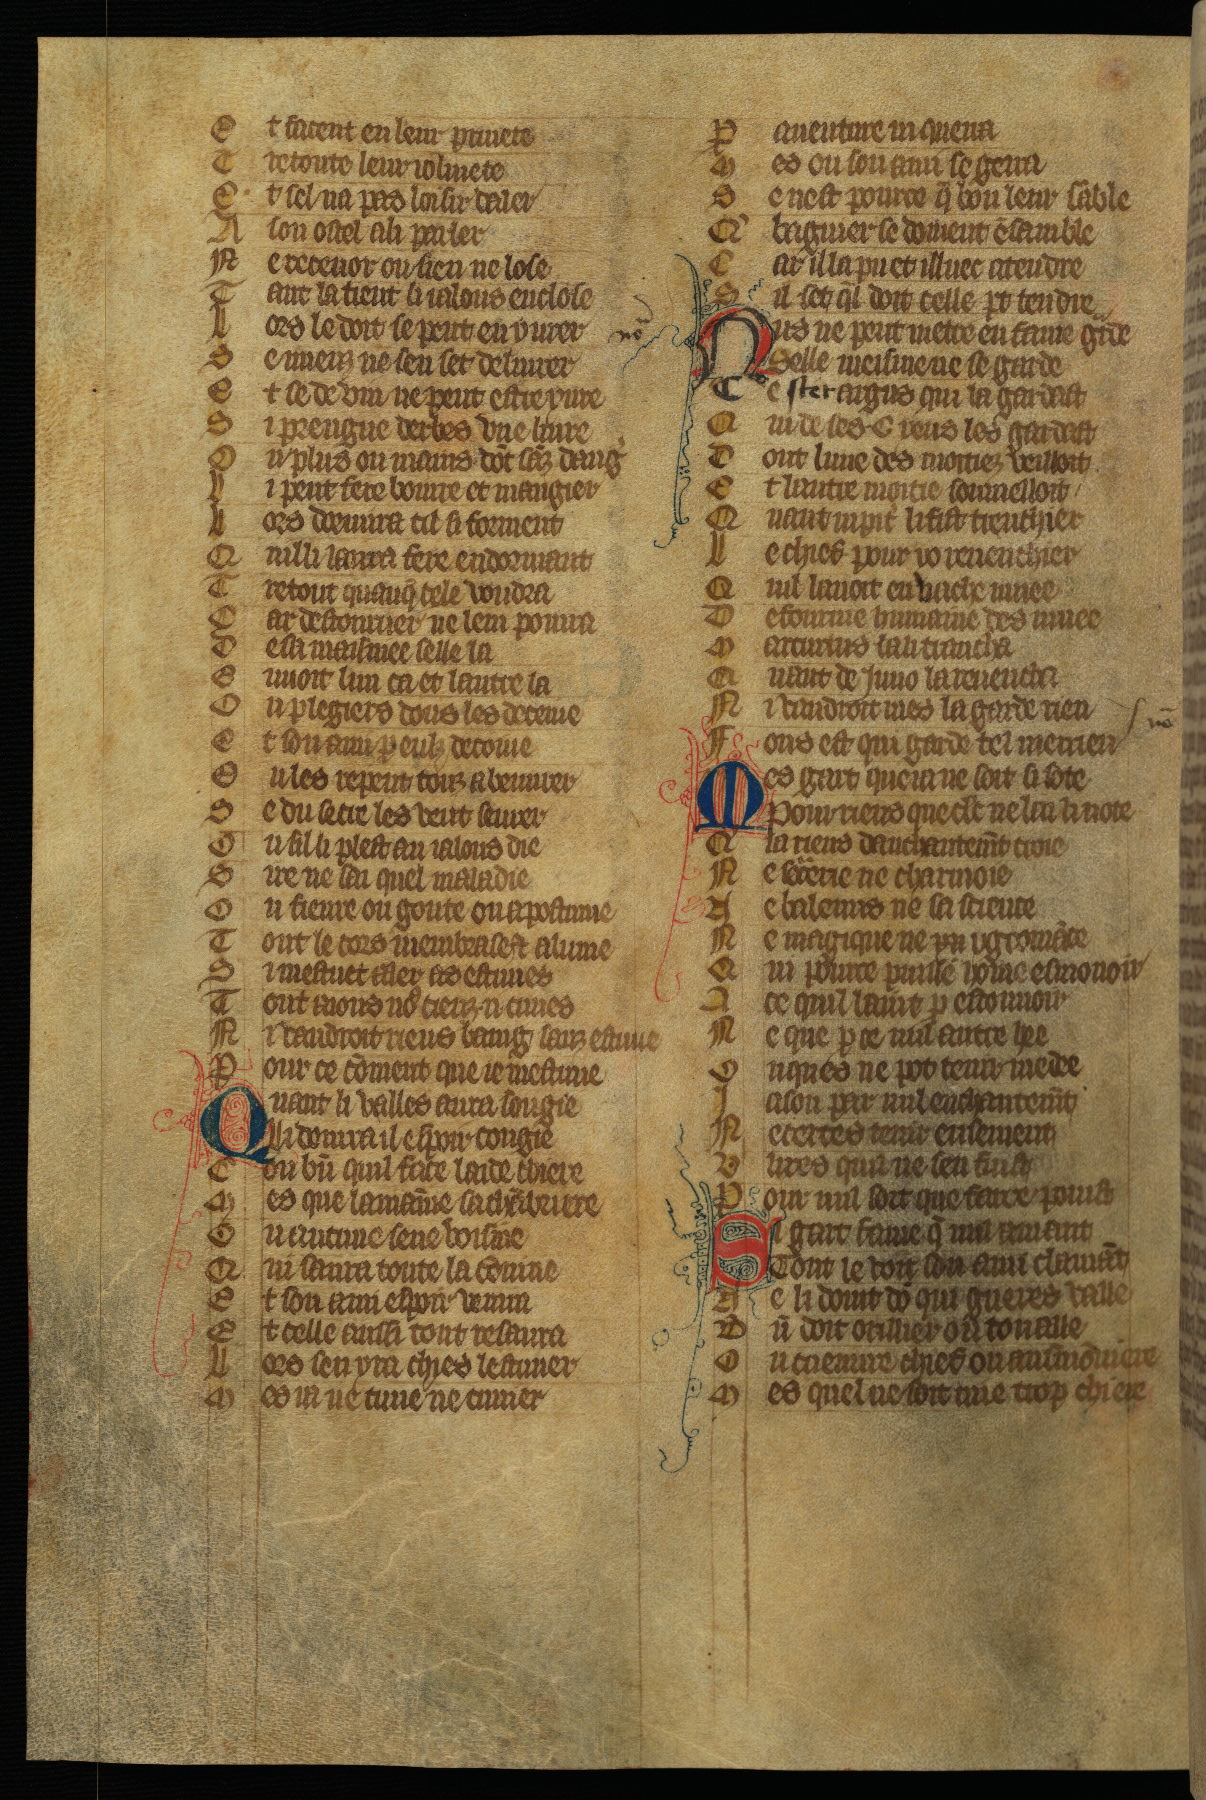 E t facent en leur priuete
T restoute leur volunete
E t sel na pas loisir daler
A son ostel a li parler
N e receuoir ou sien ne lose
T ant la tient li ialous enclose
L ors le doit se peut enyurer
S e mieuz ne sen set deliurer
E t se de vin ne peut estre yure
S i prengne derbes vne liure
O u plus ou mains dōt sāz dang̃
L i peut fere boiure et mangier
L ors dormira cil si forment
Q uil li laira fere en dormant
T retout quanq̄ cele voudra
C ar destourner ne lem pourra
D e sa maisniee selle la
E nuoit lun ca et lautre la
O u p legiers dons les deceiue
E t son ami p eulz recoiue
O u les repeut touz abeuurer
S e du secre les veut seurer
O u sil li plest au ialous die
S ire ne sai quel maladie
O u fieure ou goute ou apostume
T out le cors membrase et alume
S i mestuet aler as estuues
T out aions no9 ceienz .ii. cuues
N i vaudroit riens baing sanz estuue
P our ce cōment que ie mestuue
Q uant li valles aura songie
L li donra il espoir congie
C ōbn̄ quil face laide chiere
M es que lamaīne sa chāberiere
O u aucune sene voisine
Q ui saura toute la cōuine
E t son ami espoir venra
E t celle aussi tout resaura
L ors sen yra chies lestuuier
M es ia ne cuue ne cuuier
P auenture ni querra
M es ou son ami se gerra
S e nest pource q̄ bon leur sāble
Q̄ baignier se doiuent ēsamble
C ar il la puet illuec atendre
S il set q̄l doit celle pt tendre
N us ne peut metre en fame gāde
Selle meisme ne se garde
C e ster argus qui la gardast
Q ui de ses .C. ieus les gardast
D ont lune des moitiez veilloit
E t lautre moitie sommelloit
Q uant iupit̄ li fist trenchier
L e chief pour yo reuenchier
Q uil lauoit en vache muee
D e fourme humaine desnuee
M arcurius la li trancha
Q uant de Juno la reuencha
N i vaudroit mes la garde rien
F ous est qui garde tel merrien
M es gart que ia ne soit si sote
Pour riens que clerc ne lui li note
Q ia riens danchantemt̄ croie
N e sorcerie ne charmoie
N e balenus ne sa science
N e magique ne nygromāce
Q ui pource puisse home esmouoir
A ce quil laint p estouuoir
N e que p ce nul autre hee
O nques ne pot tenir medee
J ason par nul enchantemt̄
N e certes tenir ensement
V lixes qua ne sen fuist
P our nul sort que faire poust
S i gart fame q̄ nul amant
Tout le voit son ami clamāt
N e li doint dō qui gueres valle
B n̄ doit orillier ou touaille
O u cueurre chief ou aumōniere
M es quel ne soit mie trop chiere